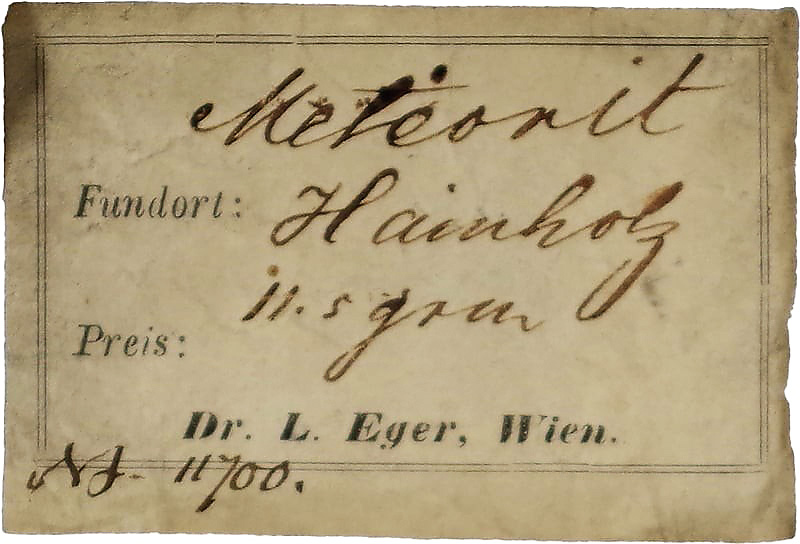 Meteorit
Fundort: Hainholz
11.5 grm
Preis:
Dr. L. Eger, Wien.
11700.